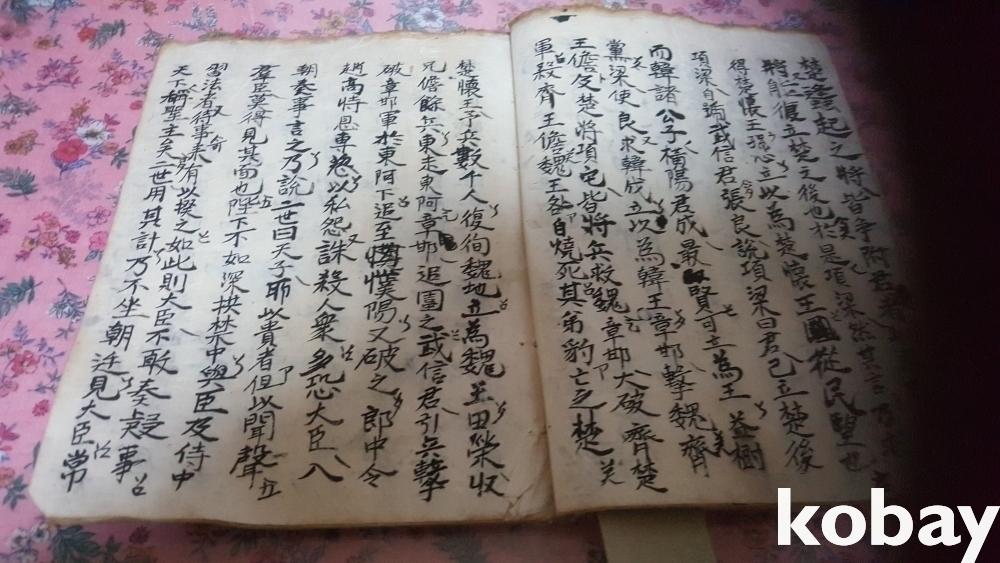 楚蠭起之將皆爭附君者
將自復立楚之後也於是項梁然其言乃求
得楚懷王孫心立以為楚懷王從民望也
項梁自號武信君張良說項梁曰君已立楚後
而韓諸公子橫陽君成最賢可立為王益樹
黨梁使良求韓成立以為韓王章邯擊魏齊
王儋及楚將項它皆將兵救魏章邯大破齊楚
軍殺齊王儋魏王咎自燒死其弟豹亡之楚
楚懷王予兵數千人復徇魏地立為魏王田榮收
兄儋餘兵東走東阿章邯追圍之武信君引兵擊
破章邯軍於東阿下追至濮陽又破之郎中令
趙高恃恩專恣以私怨誅殺人衆多恐大臣入
朝奏事言之乃說二世曰天子所以貴者但以聞聲
羣臣莫得見其面也陛下不如深拱禁中與臣及侍中
習法者待事來有以揆之如此則大臣不敢奏疑事
天下稱聖主矣二世用其計乃不坐朝廷見大臣常
kobay